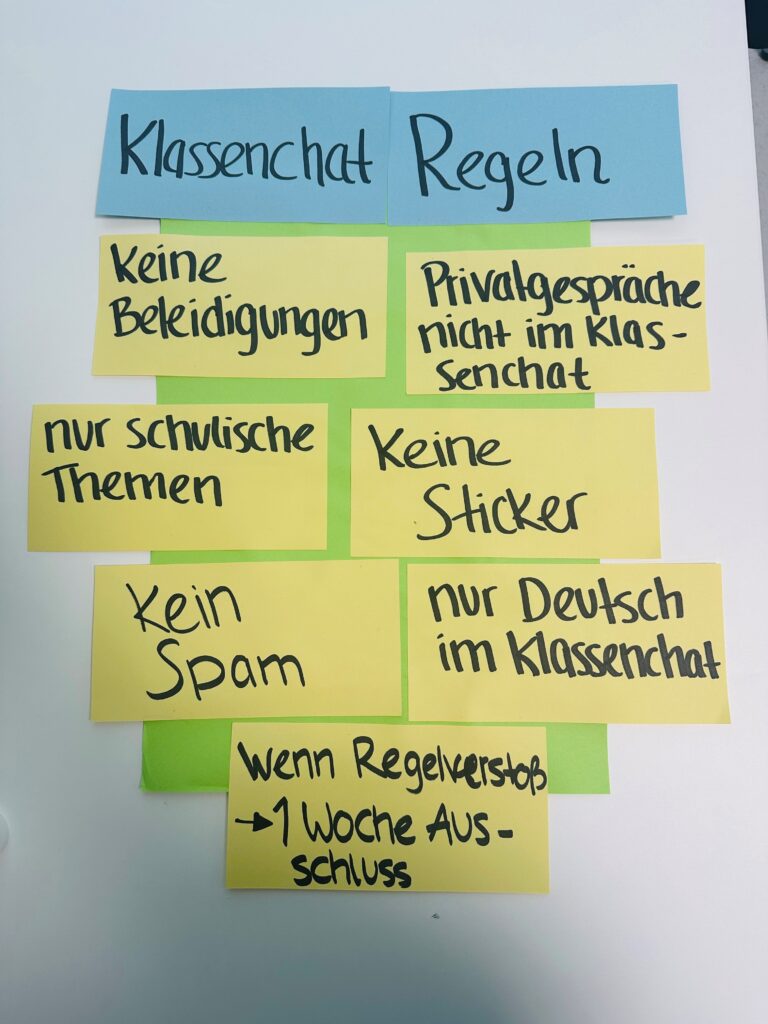 Klassenchat Regeln
Keine
Beleidigungen
Privatgespräche
nicht im Klas-
senchat
nur schulische
Themen
Keine
Sticker
Kein
Spam
nur Deutsch
im Klassenchat
Wenn Regelverstoß
→ 1 Woche Aus-
schluss